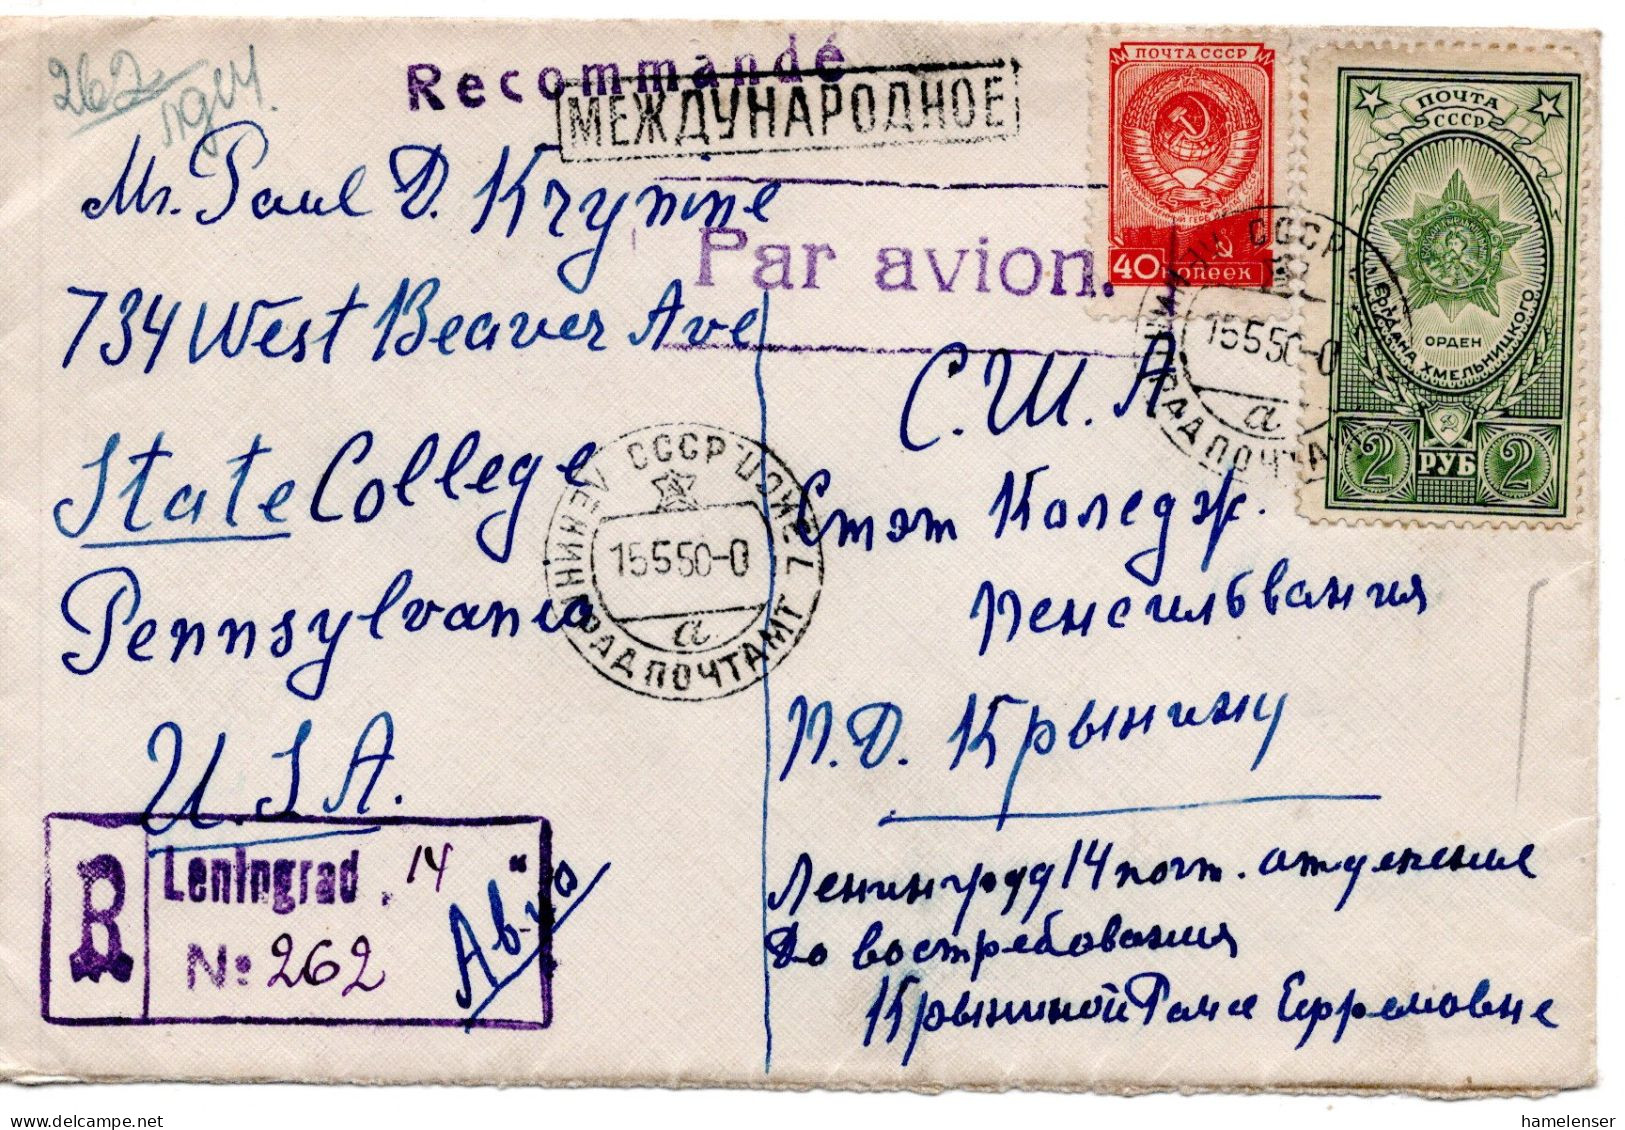 262
лд 14.
Recommandé
МЕЖДУНАРОДНОЕ
Par avion.
ПОЧТА СССР
40 КОПЕЕК
ПОЧТА
СССР
ОРДЕН
БОГДАНА ХМЕЛЬНИЦКОГО
2 РУБ 2
Mr. Paul D. Krynine
734 West Beaver Ave
State College
Pennsylvania
U.S.A.
ЛЕНИНГРАД ПОЧТАМТ
СССР
15550-0
а
СССР
15550-0
а
ЛЕНИНГРАД ПОЧТАМТ
С.Ш.А
Стэт Каледж.
Пенсильвания
П.Д. Крынину
Ленинград 14 почт. отделение
До востребования
Крыниной Раисе Ефремовне
R
Leningrad 14
№ 262
Авиа
hamelenser
www.delcampe.net